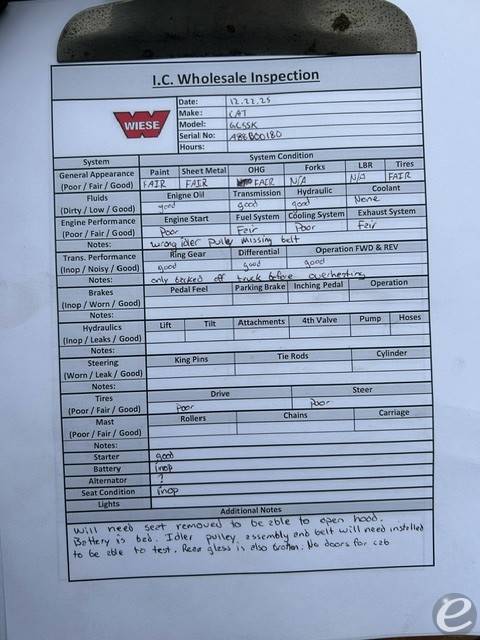 I.C. Wholesale Inspection
WIESE
Date: 12.22.25
Make: CAT
Model: GC55K
Serial No: A88B00180
Hours:
System System Condition
General Appearance Paint Sheet Metal OHG Forks LBR Tires
(Poor / Fair / Good) FAIR FAIR FAIR N/A N/A FAIR
Fluids Enigne Oil Transmission Hydraulic Coolant
(Dirty / Low / Good) good good good None
Engine Performance Engine Start Fuel System Cooling System Exhaust System
(Poor / Fair / Good) Poor Fair Poor Fair
Notes: wrong idler pully missing belt
Trans. Performance Ring Gear Differential Operation FWD & REV
(Inop / Noisy / Good) good good good
Notes: only backed off truck before overheating
Brakes Pedal Feel Parking Brake Inching Pedal Operation
(Inop / Worn / Good)
Notes:
Hydraulics Lift Tilt Attachments 4th Valve Pump Hoses
(Inop / Leaks / Good)
Notes:
Steering King Pins Tie Rods Cylinder
(Worn / Leak / Good)
Notes:
Tires Drive Steer
(Poor / Fair / Good) Poor Poor
Mast Rollers Chains Carriage
(Poor / Fair / Good)
Notes:
Starter good
Battery inop
Alternator ?
Seat Condition inop
Lights
Additional Notes
Will need seat removed to be able to open hood.
Battery is bad. Idler pulley, assembly and belt will need installed
to be able to test. Rear glass is also broken. No doors for cab
e